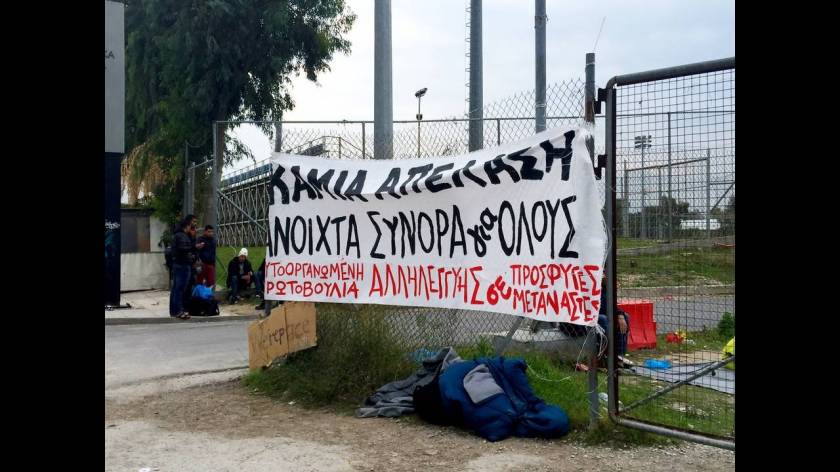 ΚΑΜΙΑ ΑΠΕΛΑΣΗ
ΑΝΟΙΧΤΑ ΣΥΝΟΡΑ για ΟΛΟΥΣ
ΥΤΟΟΡΓΑΝΩΜΕΝΗ
ΡΩΤΟΒΟΥΛΙΑ
ΑΛΛΗΛΕΓΓΥΗΣ σε
ΠΡΟΣΦΥΓΕΣ
ΜΕΤΑΝΑΣΤΕΣ